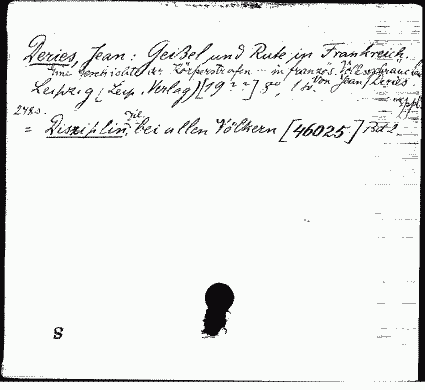 Deries, Jean: Geißel und Rute in Frankreich.
Eine Geschichte der Körperstrafen in französ.
Leipzig (Leip. Verlag) [19??] 8°, Von Jean Deries
248 S.
= Disziplin, die, bei allen Völkern [46025] Bd 2
S